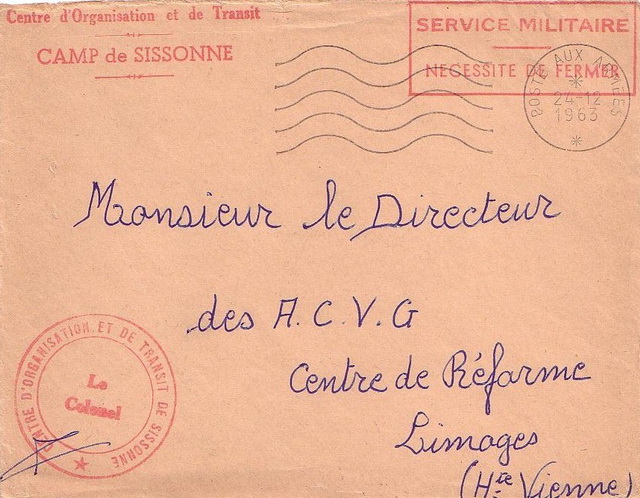 Centre d'Organisation et de Transit
CAMP de SISSONNE
SERVICE MILITAIRE
NECESSITE DE FERMER
POSTE AUX ARMEES
24-12
1963
Monsieur le Directeur
des A.C.V.G
Centre de Réforme
Limoges
(Hte Vienne)
CENTRE D'ORGANISATION ET DE TRANSIT DE SISSONNE
Le
Colonel